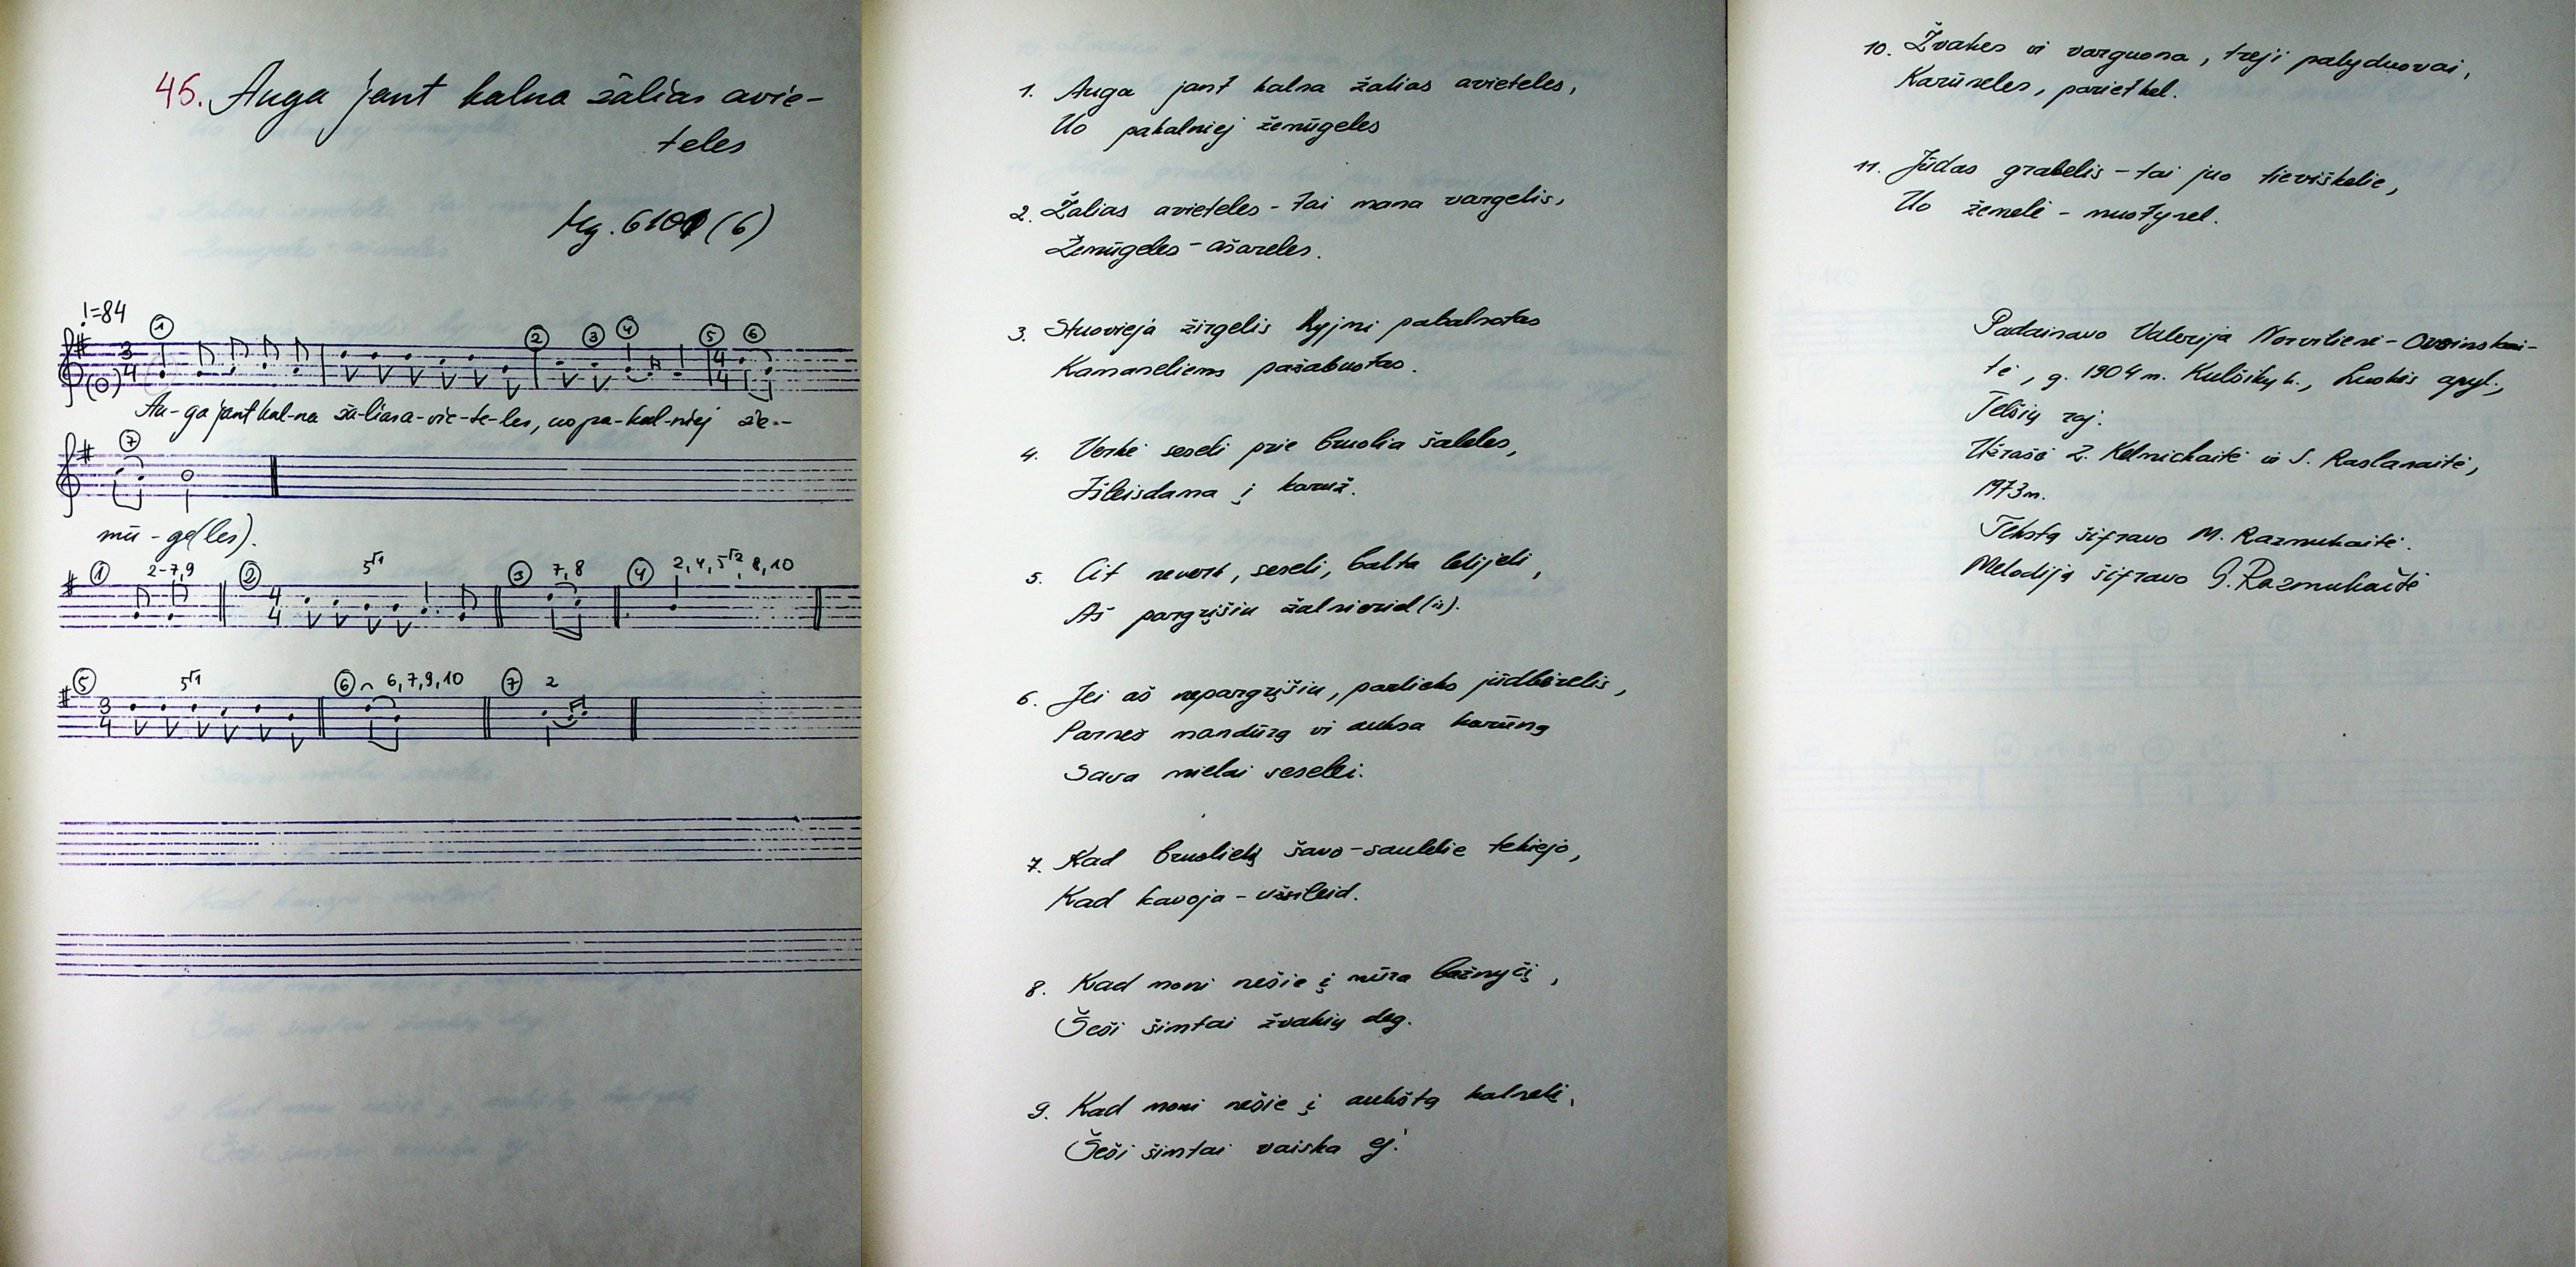 45. Auga jant kalna žalias avie-
teles
Mg. 6101 (6)
♩=84
1 2 3 4 5 6
3/4 4/4
Au-ga jant kal-na ža-lias a-vie-te-les, uo pa-kal-niej že-
7
mū-ge(les).
1 2-7,9 2 4/4 5√1 3 7,8 4 2,4,5√2, 8,10
5 3/4 5√1 6 6,7,9,10 7 2
1. Auga jant kalna žalias avieteles,
Uo pakalniej žemūgeles
2. Žalias avieteles - tai mana vargelis,
Žemūgeles - ašareles.
3. Stuovieja žirgelis pabalnotas
Kamaneliems pažabuotas.
4. Verkė seseli prie bruolia šaleles,
Išleisdama į karuž.
5. Cit neverk, seseli, balta lelijeli,
Aš pargrįšiu žalnieriel(is).
6. Jei aš nepargrįšiu, parlieks jūdbierelis,
Parneš mandūrą vi auksa karūną
Sava mielai seselei.
7. Kad bruolielį šavo - saulelie tekiejo,
Kad kavoja - užsileid.
8. Kad moni nešie į mūra bažnyčį,
Šeši šimtai žvakių deg.
9. Kad moni nešie į aukštą kalneli,
Šeši šimtai vaiska ej.
10. Žvakes vi varguona, treji palyduovai,
Karūneles, pariet kel.
11. Jūdas grabelis - tai juo tieviškelie,
Uo žemelė - muotynel.
Padainavo Valerija Norvilienė -
tė, g. 1904 m. Kulšikų k., Luokės apyl.,
Telšių raj.
Užrašė Z. Kelmickaitė ir S. Raslanaitė,
1973 m.
Tekstą šifravo M. Razmukaitė.
Melodiją šifravo G. Razmukaitė